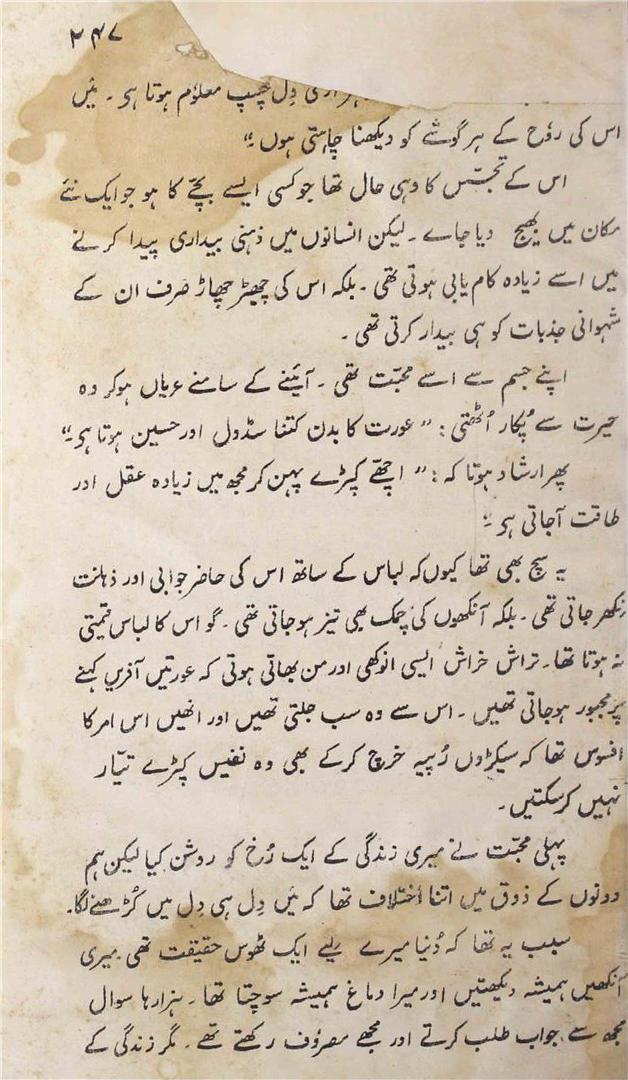 ۲۴۷
دل چسپ معلوم ہوتا ہی ۔ میں
اس کی روٗح کے ہر گوشے کو دیکھنا چاہتی ہوں ؛“
اس کے تجسّس کا وہی حال تھا جو کسی ایسے بچّے کا ہو جو ایک نئے
مکان میں بھیج دیا جاے ۔ لیکن انسانوں میں ذہنی بیداری پیدا کرنے
میں اسے زیادہ کام یابی ہوتی تھی ۔ بلکہ اس کی چھیڑ چھاڑ صرف ان کے
شہوانی جذبات کو ہی بیدار کرتی تھی ۔
اپنے جسم سے اسے محبّت تھی ۔ آئینے کے سامنے عریاں ہوکر وہ
حیرت سے پُکار اُٹھتی : ” عورت کا بدن کتنا سڈول اور حسین ہوتا ہی ۔“
پھر ارشاد ہوتا کہ : ” اچھّے کپڑے پہن کر مجھ میں زیادہ عقل اور
طاقت آجاتی ہی ؛“
یہ سچ بھی تھا کیوں کہ لباس کے ساتھ اس کی حاضر جوابی اور ذہانت
نکھر جاتی تھی ۔ بلکہ آنکھوں کی چمک بھی تیز ہوجاتی تھی ۔ گو اس کا لباس قیمتی
نہ ہوتا تھا ۔ تراش خراش ایسی انوکھی اور من بھاتی ہوتی کہ عورتیں آفریں کہنے
پر مجبور ہوجاتی تھیں ۔ اس سے وہ سب جلتی تھیں اور انھیں اس امر کا
افسوس تھا کہ سیکڑوں رُپیہ خرچ کرکے بھی وہ نفیس کپڑے تیّار
نہیں کرسکتیں ۔
پہلی محبّت نے میری زندگی کے ایک رُخ کو روشن کیا لیکن ہم
دونوں کے ذوق میں اتنا اختلاف تھا کہ مَیں دِل ہی دِل میں کُڑھنے لگا ۔
سبب یہ تھا کہ دُنیا میرے لیے ایک ٹھوس حقیقت تھی میری
آنکھیں ہمیشہ دیکھتیں اور میرا دماغ ہمیشہ سوچتا تھا ۔ ہزارہا سوال
مجھ سے جواب طلب کرتے اور مجھے مصروٗف رکھتے تھے ۔ مگر زندگی کے